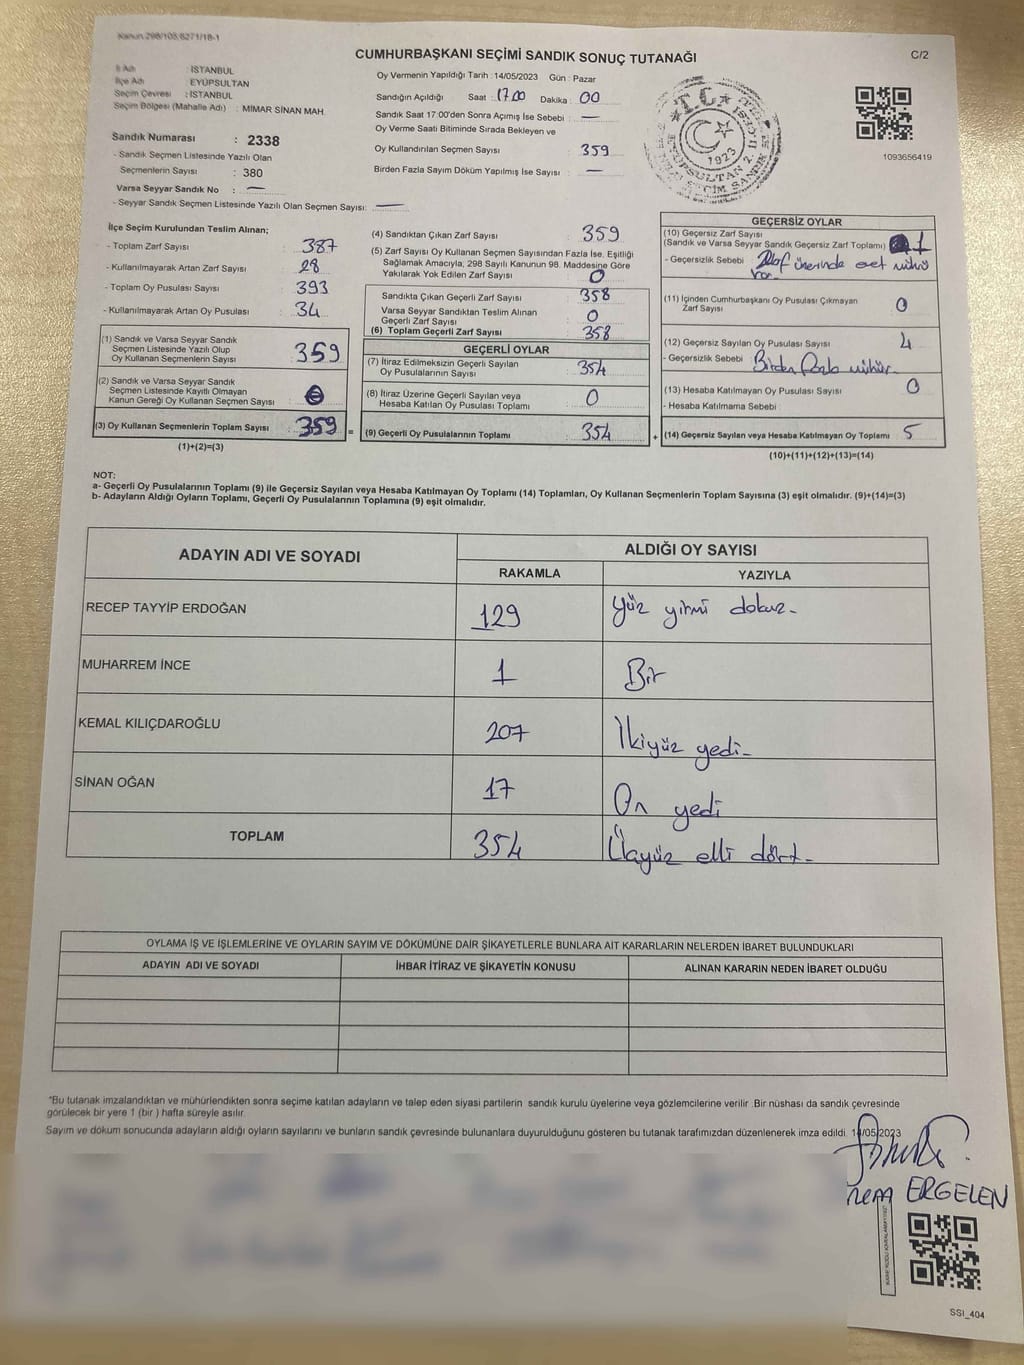 Kanun 298/105,6271/18-1
CUMHURBAŞKANI SEÇİMİ SANDIK SONUÇ TUTANAĞI
C/2
İl Adı : İSTANBUL
İlçe Adı : EYÜPSULTAN
Seçim Çevresi : İSTANBUL
Seçim Bölgesi (Mahalle Adı) : MİMAR SİNAN MAH.
Sandık Numarası : 2338
- Sandık Seçmen Listesinde Yazılı Olan
Seçmenlerin Sayısı : 380
Varsa Seyyar Sandık No : —
- Seyyar Sandık Seçmen Listesinde Yazılı Olan Seçmen Sayısı: —
Oy Vermenin Yapıldığı Tarih : 14/05/2023 Gün : Pazar
Sandığın Açıldığı Saat : 17.00 Dakika : 00
Sandık Saat 17:00'den Sonra Açımış İse Sebebi : —
Oy Verme Saati Bitiminde Sırada Bekleyen ve
Oy Kullandırılan Seçmen Sayısı : 359
Birden Fazla Sayım Döküm Yapılmış İse Sayısı : —
T.C.
1923
1093656419
İlçe Seçim Kurulundan Teslim Alınan;
- Toplam Zarf Sayısı : 387
- Kullanılmayarak Artan Zarf Sayısı : 28
- Toplam Oy Pusulası Sayısı : 393
- Kullanılmayarak Artan Oy Pusulası : 34
(1) Sandık ve Varsa Seyyar Sandık
Seçmen Listesinde Yazılı Olup
Oy Kullanan Seçmenlerin Sayısı : 359
(2) Sandık ve Varsa Seyyar Sandık
Seçmen Listesinde Kayıtlı Olmayan
Kanun Gereği Oy Kullanan Seçmen Sayısı : 0
(3) Oy Kullanan Seçmenlerin Toplam Sayısı : 359 =
(1)+(2)=(3)
(4) Sandıktan Çıkan Zarf Sayısı : 359
(5) Zarf Sayısı Oy Kullanan Seçmen Sayısından Fazla İse, Eşitliği
Sağlamak Amacıyla, 298 Sayılı Kanunun 98. Maddesine Göre
Yakılarak Yok Edilen Zarf Sayısı : 0
Sandıkta Çıkan Geçerli Zarf Sayısı : 358
Varsa Seyyar Sandıktan Teslim Alınan
Geçerli Zarf Sayısı : 0
(6) Toplam Geçerli Zarf Sayısı : 358
GEÇERLİ OYLAR
(7) İtiraz Edilmeksizin Geçerli Sayılan
Oy Pusulalarının Sayısı : 354
(8) İtiraz Üzerine Geçerli Sayılan veya
Hesaba Katılan Oy Pusulası Toplamı : 0
(9) Geçerli Oy Pusulalarının Toplamı : 354 +
GEÇERSİZ OYLAR
(10) Geçersiz Zarf Sayısı
(Sandık ve Varsa Seyyar Sandık Geçersiz Zarf Toplamı) : 1
- Geçersizlik Sebebi : üzerinde evet mührü
var.
(11) İçinden Cumhurbaşkanı Oy Pusulası Çıkmayan
Zarf Sayısı : 0
(12) Geçersiz Sayılan Oy Pusulası Sayısı : 4
- Geçersizlik Sebebi : Birden Fazla mühür.
(13) Hesaba Katılmayan Oy Pusulası Sayısı : 0
- Hesaba Katılmama Sebebi
(14) Geçersiz Sayılan veya Hesaba Katılmayan Oy Toplamı : 5
(10)+(11)+(12)+(13)=(14)
NOT:
a- Geçerli Oy Pusulalarının Toplamı (9) ile Geçersiz Sayılan veya Hesaba Katılmayan Oy Toplamı (14) Toplamları, Oy Kullanan Seçmenlerin Toplam Sayısına (3) eşit olmalıdır. (9)+(14)=(3)
b- Adayların Aldığı Oyların Toplamı, Geçerli Oy Pusulalarının Toplamına (9) eşit olmalıdır.
ADAYIN ADI VE SOYADI
ALDIĞI OY SAYISI
RAKAMLA YAZIYLA
RECEP TAYYİP ERDOĞAN 129 Yüz yirmi dokuz-
MUHARREM İNCE 1 Bir
KEMAL KILIÇDAROĞLU 207 İkiyüz yedi-
SİNAN OĞAN 17 On yedi
TOPLAM 354 Üçyüz elli dört-
OYLAMA İŞ VE İŞLEMLERİNE VE OYLARIN SAYIM VE DÖKÜMÜNE DAİR ŞİKAYETLERLE BUNLARA AİT KARARLARIN NELERDEN İBARET BULUNDUKLARI
ADAYIN ADI VE SOYADI İHBAR İTİRAZ VE ŞİKAYETİN KONUSU ALINAN KARARIN NEDEN İBARET OLDUĞU
*Bu tutanak imzalandıktan ve mühürlendikten sonra seçime katılan adayların ve talep eden siyasi partilerin sandık kurulu üyelerine veya gözlemcilerine verilir .Bir nüshası da sandık çevresinde
görülecek bir yere 1 (bir ) hafta süreyle asılır.
Sayım ve döküm sonucunda adayların aldığı oyların sayılarını ve bunların sandık çevresinde bulunanlara duyurulduğunu gösteren bu tutanak tarafımızdan düzenlenerek imza edildi. 14/05/2023
ERGELEN
SSI_404